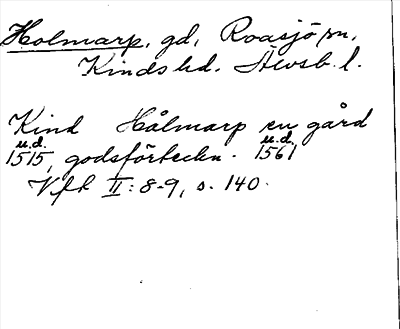 Holmarp, gd, Roasjö sn,
Kinds hd. Älvsb. l.
Kind Hålmarp en gård
u.d. u.d.
1515, godsförteckn. 1561
Vfk II: 8-9, s. 140.